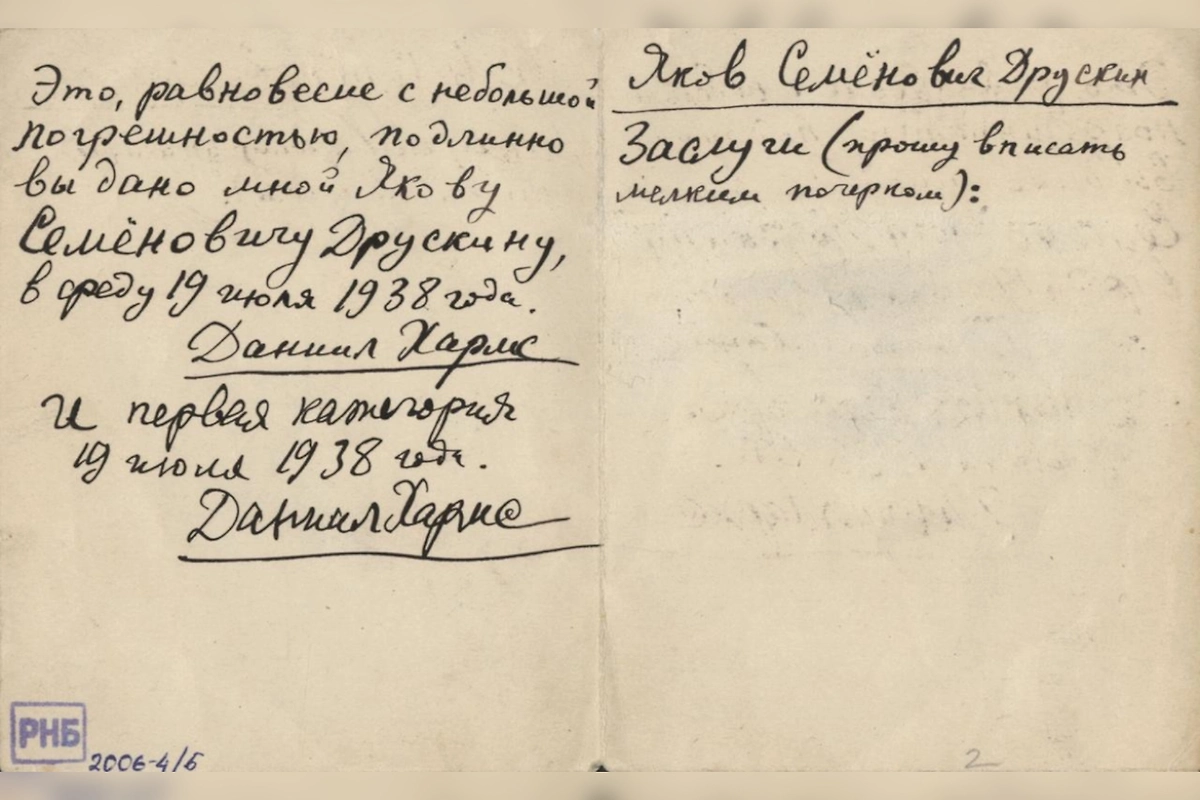 Это, равновесие с небольшой
погрешностью, подлинно
выдано мной Якову
Семёновичу Друскину,
в среду 19 июля 1938 года.
Даниил Хармс
И первая категория
19 июля 1938 года.
Даниил Хармс
РНБ
2006-4/5
Яков Семёнович Друскин
Заслуги (прошу вписать
мелким почерком):
2